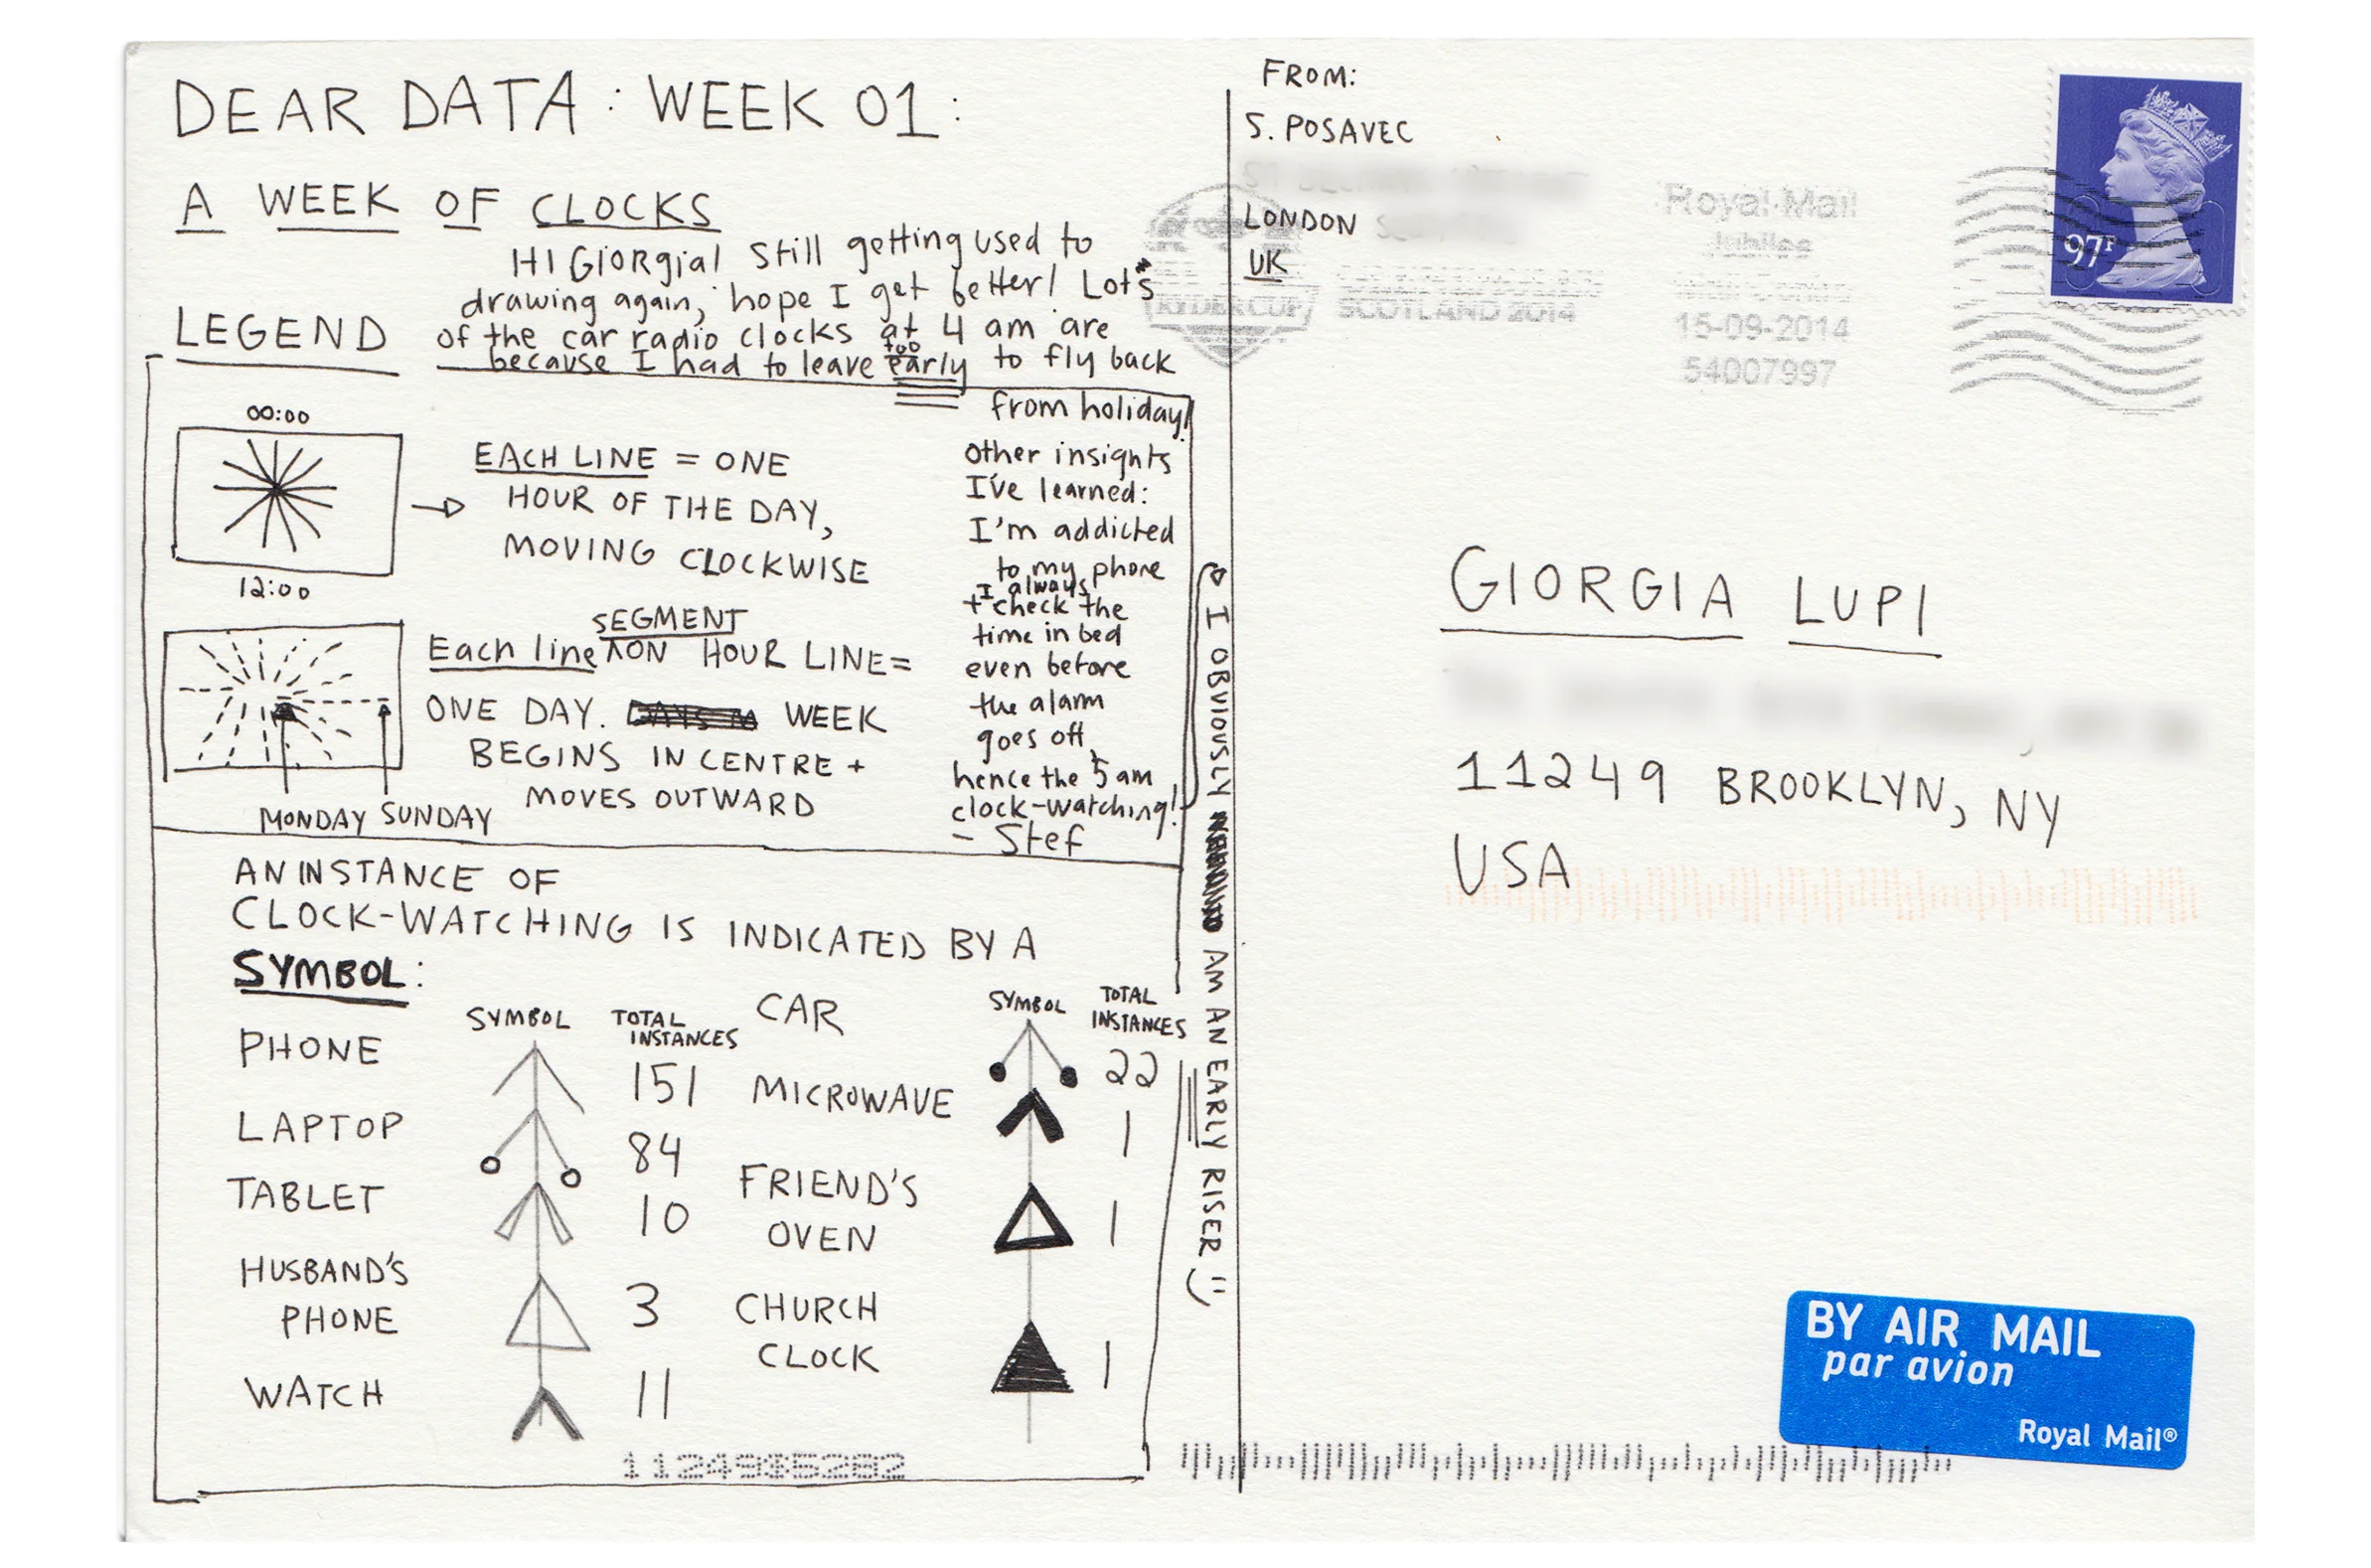 DEAR DATA: WEEK 01:
A WEEK OF CLOCKS
HI GIORgia! Still getting used to
drawing again, hope I get better! Lots
of the car radio clocks at 4 am are
because I had to leave too early to fly back
from holiday!
Other insights
I've learned:
I'm addicted
to my phone
+ I always check the
time in bed
even before
the alarm
goes off,
hence the 5 am
clock-watching!
- Stef
I OBVIOUSLY AM AN EARLY RISER
LEGEND
00:00
12:00
EACH LINE = ONE
HOUR OF THE DAY,
MOVING CLOCKWISE
Each line SEGMENT ON HOUR LINE=
ONE DAY. WEEK
BEGINS IN CENTRE +
MOVES OUTWARD
MONDAY SUNDAY
AN INSTANCE OF
CLOCK-WATCHING IS INDICATED BY A
SYMBOL:
SYMBOL TOTAL INSTANCES
PHONE 151
LAPTOP 84
TABLET 10
HUSBAND'S
PHONE 3
WATCH 11
SYMBOL TOTAL INSTANCES
CAR 22
MICROWAVE 1
FRIEND'S
OVEN 1
CHURCH
CLOCK 1
FROM:
S. POSAVEC
LONDON
UK
RYDER CUP
SCOTLAND 2014
Royal Mail
Jubilee
15-09-2014
54007997
97P
GIORGIA LUPI
11249 BROOKLYN, NY
USA
BY AIR MAIL
par avion
Royal Mail®